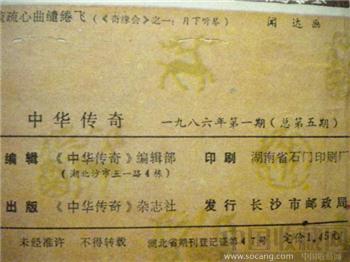 疏心曲缱绻飞（《奇缘会》之一：月下听琴） 闻达画
中华传奇 一九八六年第一期（总第五期）
编辑 《中华传奇》编辑部 印刷 湖南省石门印刷厂
（湖北沙市五一路4栋）
出版 《中华传奇》杂志社 发行 长沙市邮政局
未经准许 不得转载 湖北省期刊登记证第47号 定价1.45元
www.socang.com